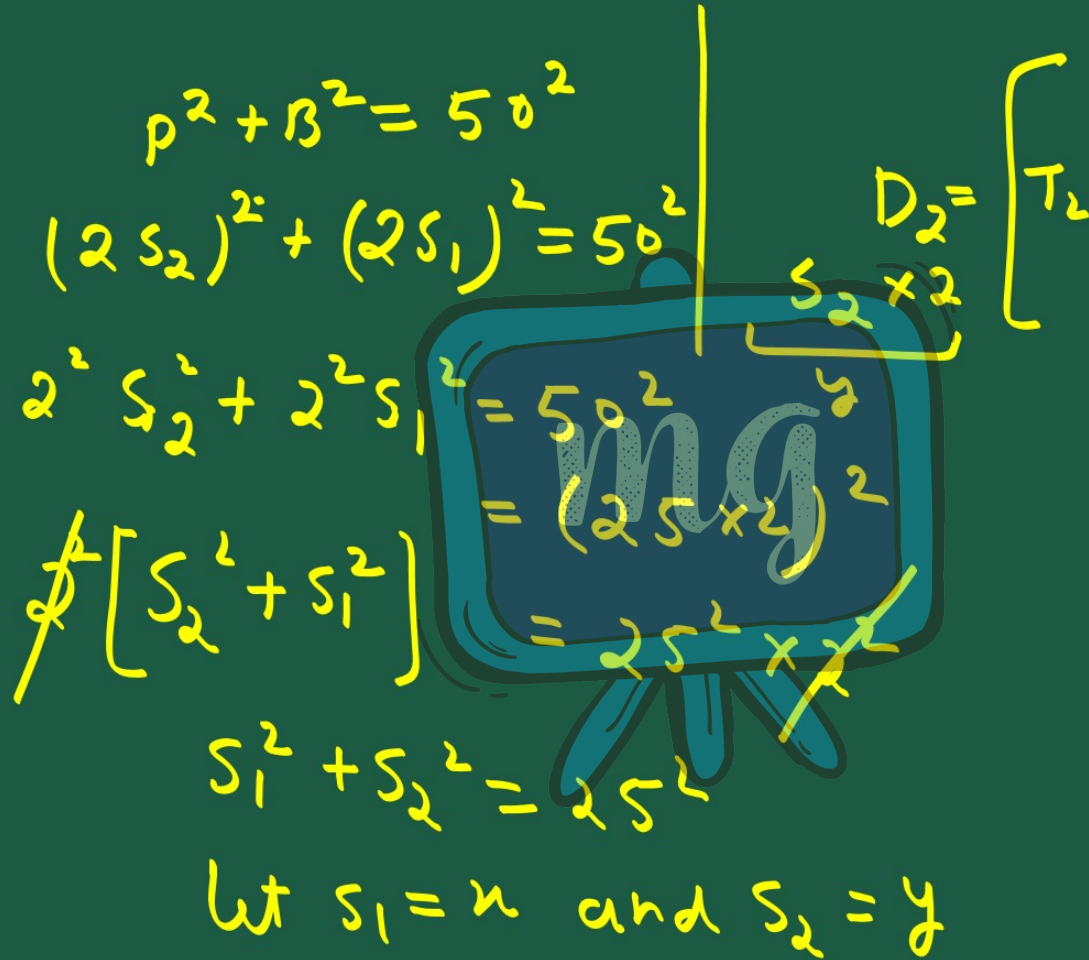 P² + B² = 50²
(2 S₂)² + (2S₁)² = 50²
2² S₂² + 2² S₁² = 50²
= (25 × 2)²
2² [S₂² + S₁²] = 25² × 2²
S₁² + S₂² = 25²
let S₁ = x and S₂ = y
D₂ = [T₂
S₂ × 2
y
mg